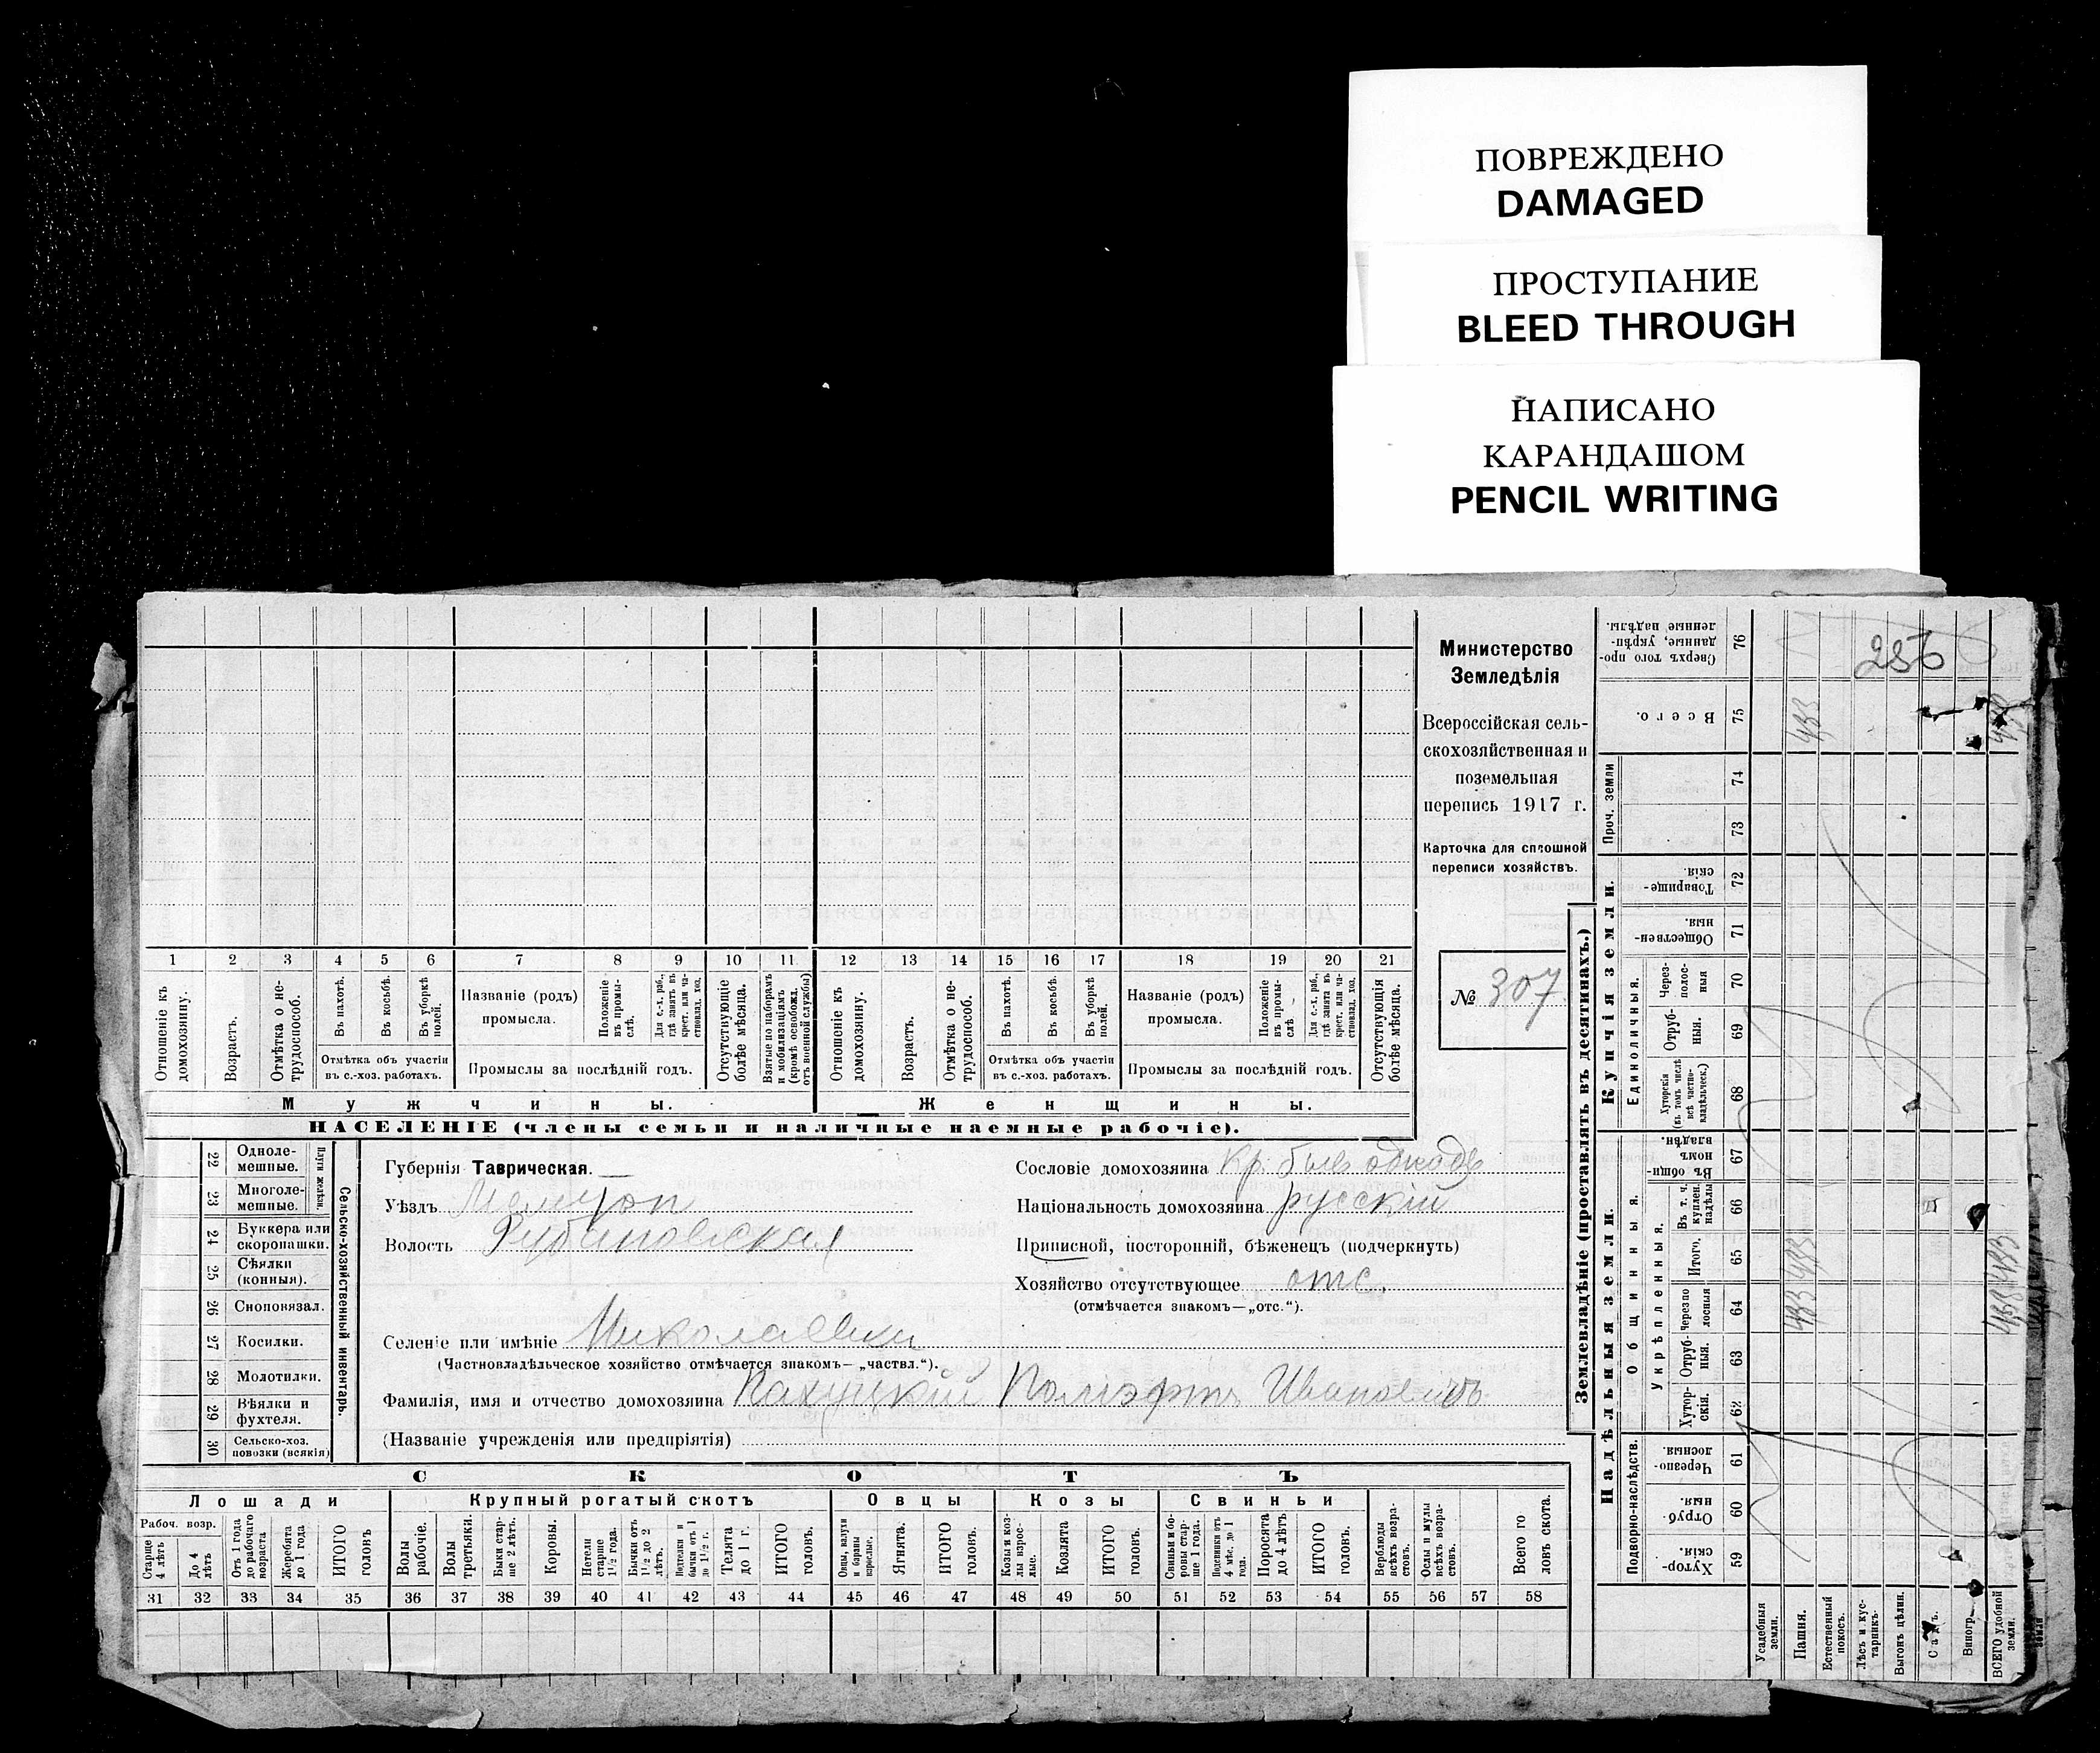 ПОВРЕЖДЕНО
DAMAGED
ПРОСТУПАНИЕ
BLEED THROUGH
НАПИСАНО
КАРАНДАШОМ
PENCIL WRITING
Министерство
Земледѣлія
Всероссійская сель-
скохозяйственная и
поземельная
перепись 1917 г.
Карточка для сплошной
переписи хозяйствъ.
№ 307
1 2 3 4 5 6 7 8 9 10 11 12 13 14 15 16 17 18 19 20 21
Отношеніе къ домохозяину.
Возрастъ.
Отмѣтка о не-трудоспособ.
Въ пахотѣ.
Въ косьбѣ.
Въ уборкѣ полей.
Отмѣтка объ участіи
въ с.-хоз. работахъ.
Названіе (родъ)
промысла.
Положеніе въ промы-слѣ.
Для с.-х. раб., гдѣ занятъ въ крест. или ча-ствовлад. хоз.
Промыслы за послѣдній годъ.
Отсутствующіе болѣе мѣсяца.
Взятые по наборамъ и мобилизаціямъ (кромѣ освобожд. отъ военной службы)
Отношеніе къ домохозяину.
Возрастъ.
Отмѣтка о не-трудоспособ.
Въ пахотѣ.
Въ косьбѣ.
Въ уборкѣ полей.
Отмѣтка объ участіи
въ с.-хоз. работахъ.
Названіе (родъ)
промысла.
Положеніе въ промы-слѣ
Для с.-х. раб., гдѣ занята въ крест. или ча-ствовлад. хоз.
Промыслы за послѣдній годъ.
Отсутствующія болѣе мѣсяца.
Мужчины.
Женщины.
НАСЕЛЕНІЕ (члены семьи и наличные наемные рабочіе).
Сельско-хозяйственный инвентарь.
Плуги желѣзн.
22 Одноле-
мешные.
23 Многоле-
мешные.
24 Буккера или
скоропашки.
25 Сѣялки
(конныя).
26 Сноповязал.
27 Косилки.
28 Молотилки.
29 Вѣялки и
фухтеля.
30 Сельско-хоз.
повозки (всякія)
Губернія Таврическая.
Уѣздъ Мелитоп
Волость Рубановская
Селеніе или имѣніе Николаевки
(Частновладѣльческое хозяйство отмѣчается знакомъ—„частвл.“).
Фамилія, имя и отчество домохозяина Ивановичъ
(Названіе учрежденія или предпріятія)
Сословіе домохозяина Кр. бывъ
Національность домохозяина русскій
Приписной, посторонній, бѣженецъ (подчеркнуть)
Хозяйство отсутствующее отс.
(отмѣчается знакомъ—„отс.“).
СКОТЪ
Лошади
Крупный рогатый скотъ
Овцы
Козы
Свиньи
Рабоч. возр.
Старше 4 лѣтъ
До 4 лѣтъ
Отъ 1 года до рабочаго возраста
Жеребята до 1 года
ИТОГО головъ
Волы рабочіе.
Волы третьяки.
Быки стар-ше 2 лѣтъ.
Коровы.
Нетели старше 1 1/2 года.
Бычки отъ 1 1/2 до 2 лѣтъ.
Подтелки и бычки отъ 1 до 1 1/2 г.
Телята до 1 г.
ИТОГО головъ.
Овцы, валухи и бараны взрослые.
Ягнята.
ИТОГО головъ.
Козы и коз-лы взрос-лые.
Козлята
ИТОГО головъ.
Свиньи и бо-ровы стар-ше 1 года.
Подсвинки отъ 4 мѣс. до 1 года.
Поросята до 4 лѣтъ.
ИТОГО головъ.
Верблюды всѣхъ возра-стовъ.
Ослы и мулы всѣхъ возра-стовъ.
Всего го ловъ скота.
31 32 33 34 35 36 37 38 39 40 41 42 43 44 45 46 47 48 49 50 51 52 53 54 55 56 57 58
Землевладѣніе (проставлять въ десятинахъ.)
256
Сверхъ того про-данные, укрѣп-ленные надѣлы. 76
Всего. 75 433
Проч. земли
74
73
Купчія земли.
Товарище-скія. 72
Обществен-ныя. 71
Единоличныя.
Черезполос-ныя 70
Отруб-ныя. 69
Хуторскія (въ томъ числѣ всѣ частно-владѣльческ.) 68
Надѣльныя земли.
Общинныя.
Въ общи-номъ владѣн. 67
Укрѣпленныя.
Въ т. ч. куплен. надѣлы 66
Итого. 65 433
Черезпо лосныя 64 433
Отруб-ныя. 63
Хутор-скія. 62
Подворно-наслѣдств.
Черезпо-лосныя. 61
Отруб-ныя. 60
Хутор-скія. 59
Усадебныя земли.
Пашня.
Естественный покосъ.
Лѣсъ и кус-тарникъ.
Выгонъ цѣлин.
Садъ.
Виногр.
ВСЕГО удобной земли.